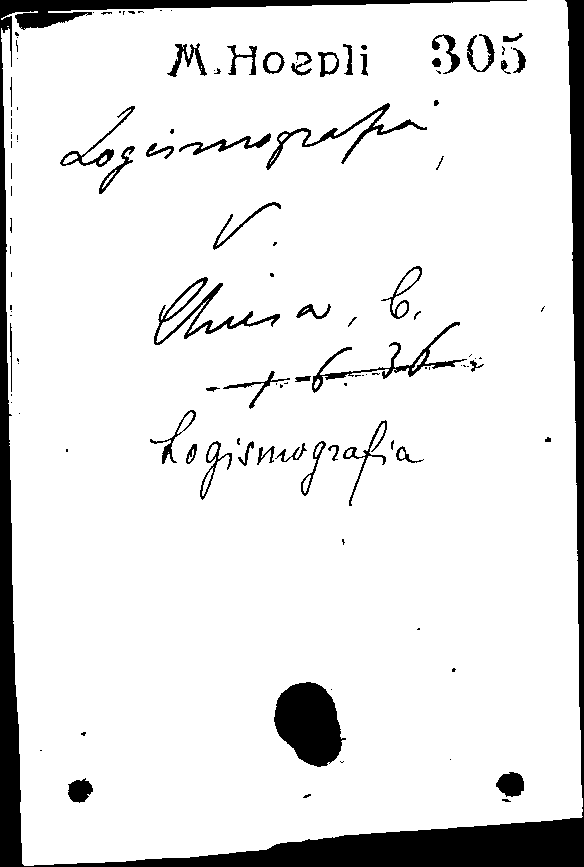 M. Hoepli 305
Logismografia,
V.
Chiesa, C.
1. 6. 36
Logismografia